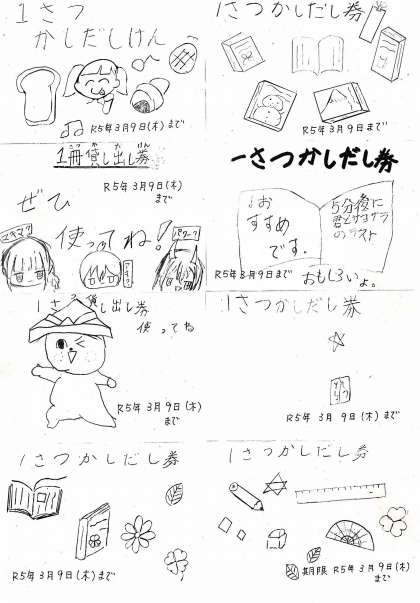 1さつ
かしだしけん
R5年3月9日(木)まで
1さつかしだし券
R5年3月9日(木)まで
1冊貸し出し券
R5年3月9日(木)
まで
ぜひ
使ってね!
一さつかしだし券
おすすめ
です。
5分後に
ラスト
R5年3月9日(木)まで
おもしろいよ。
1さつ貸し出し券
使ってね
R5年3月9日(木)
まで
1さつかしだし券
R5年3月9日(木)
まで
1さつかしだし券
R5年3月9日(木)まで
1さつかしだし券
期限 R5年3月9日(木)
まで